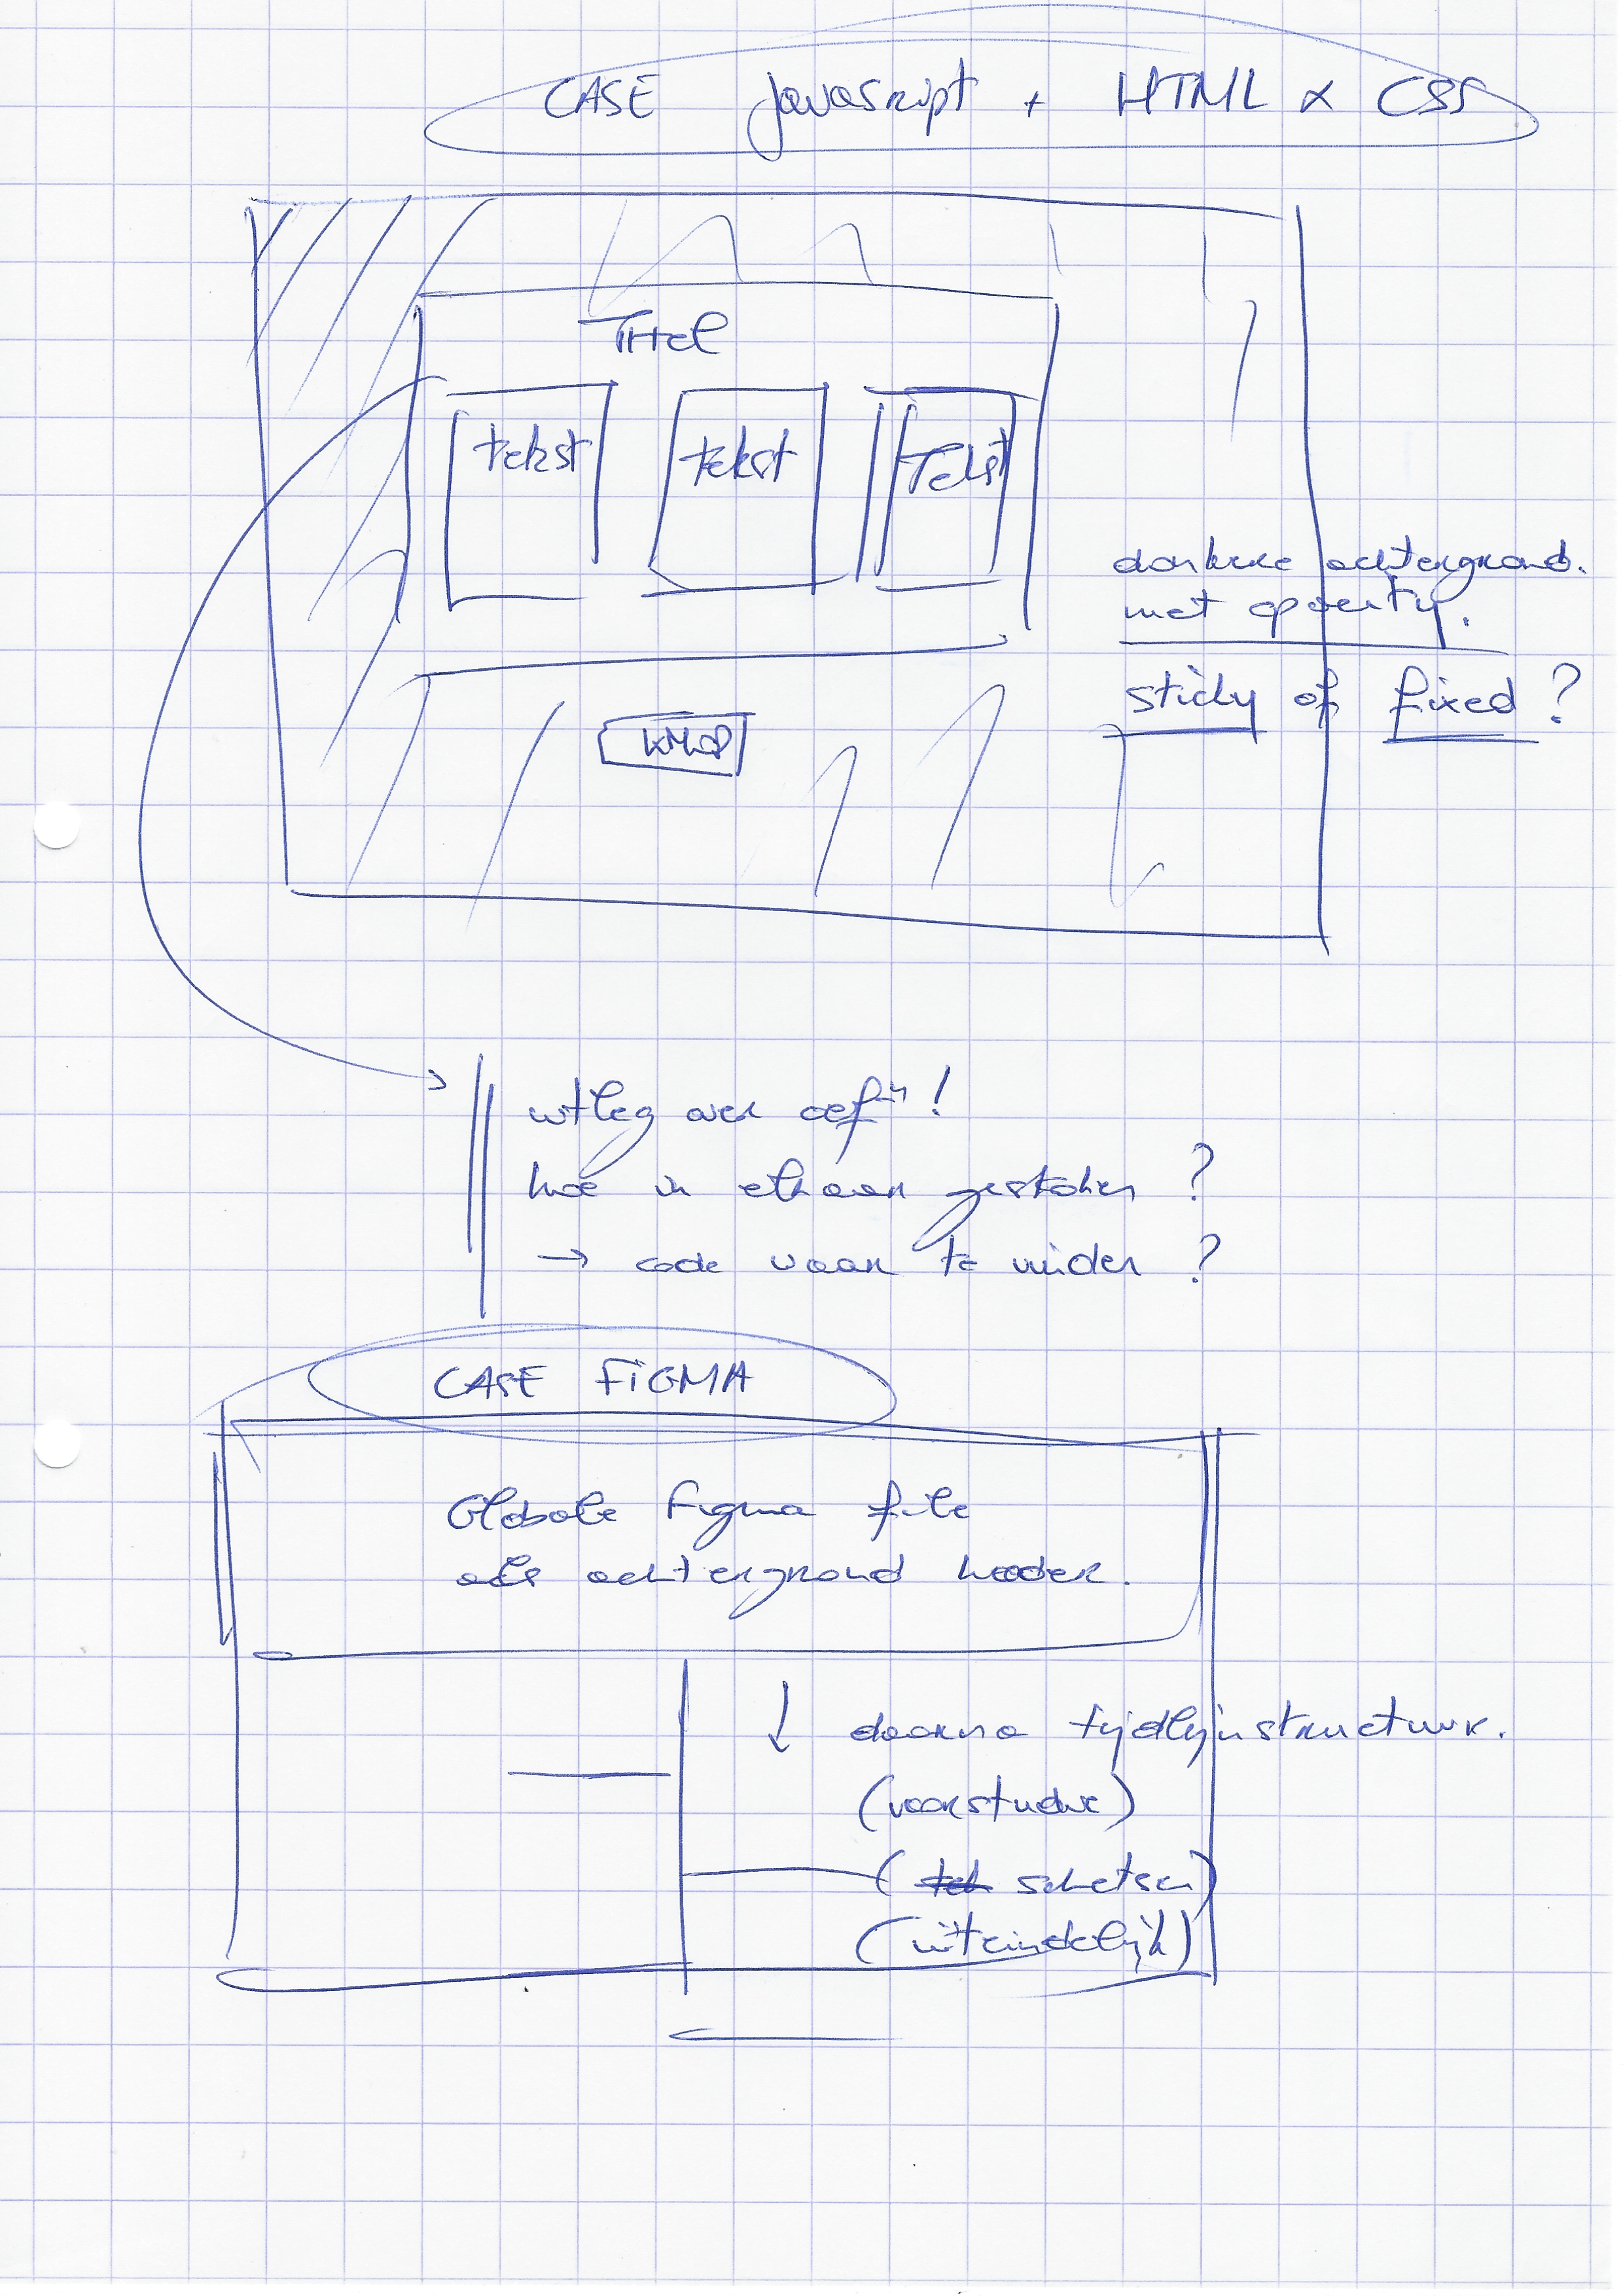 CASE javascript + HTML & CSS
Titel
tekst tekst Tekst
donkere achtergrond.
met opacity.
sticky of fixed ?
knop
uitleg over oef !
hoe in elkaar gestoken ?
→ code waar te vinden ?
CASE FIGMA
Globale Figma file
als achtergrond header.
↓ daarna tijdlijnstructuur.
(voorstudie)
(schetsen)
(uiteindelijk)